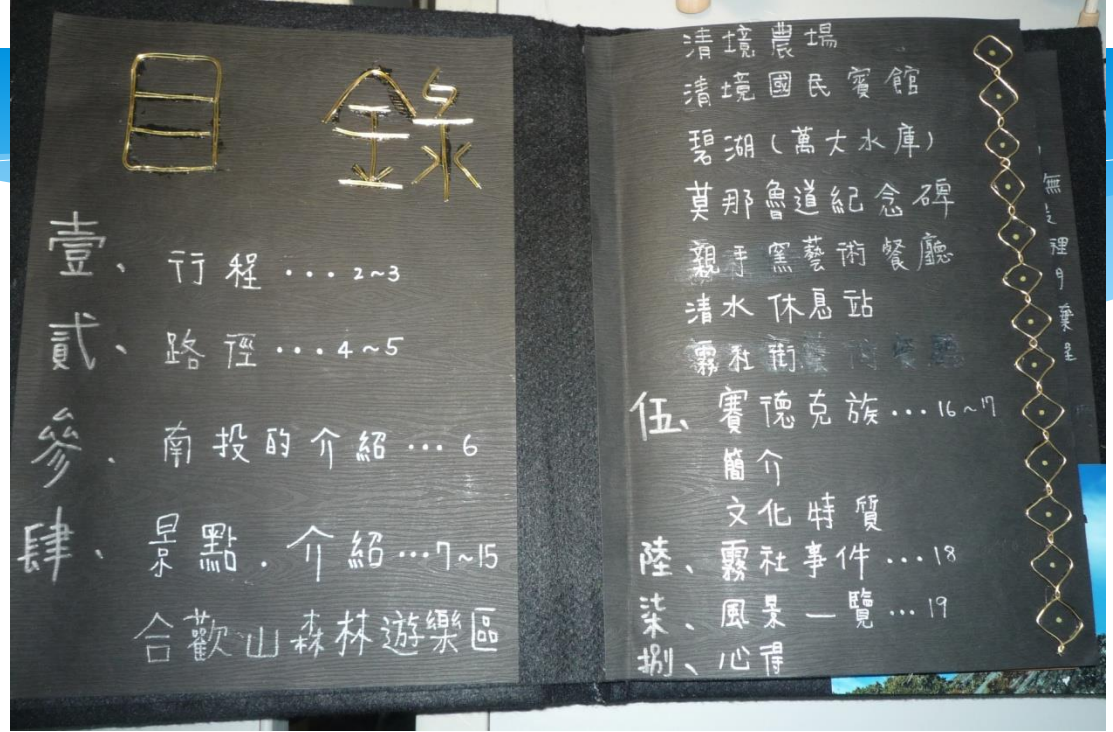 目錄
壹、行程...2~3
貳、路徑...4~5
參、南投的介紹...6
肆、景點.介紹...7~15
合歡山森林遊樂區
清境農場
清境國民賓館
碧湖(萬大水庫)
莫那魯道紀念碑
親手窯藝術餐廳
清水休息站
霧社街
伍、賽德克族...16~17
簡介
文化特質
陸、霧社事件...18
柒、風景一覽...19
捌、心得
無
裡
棄